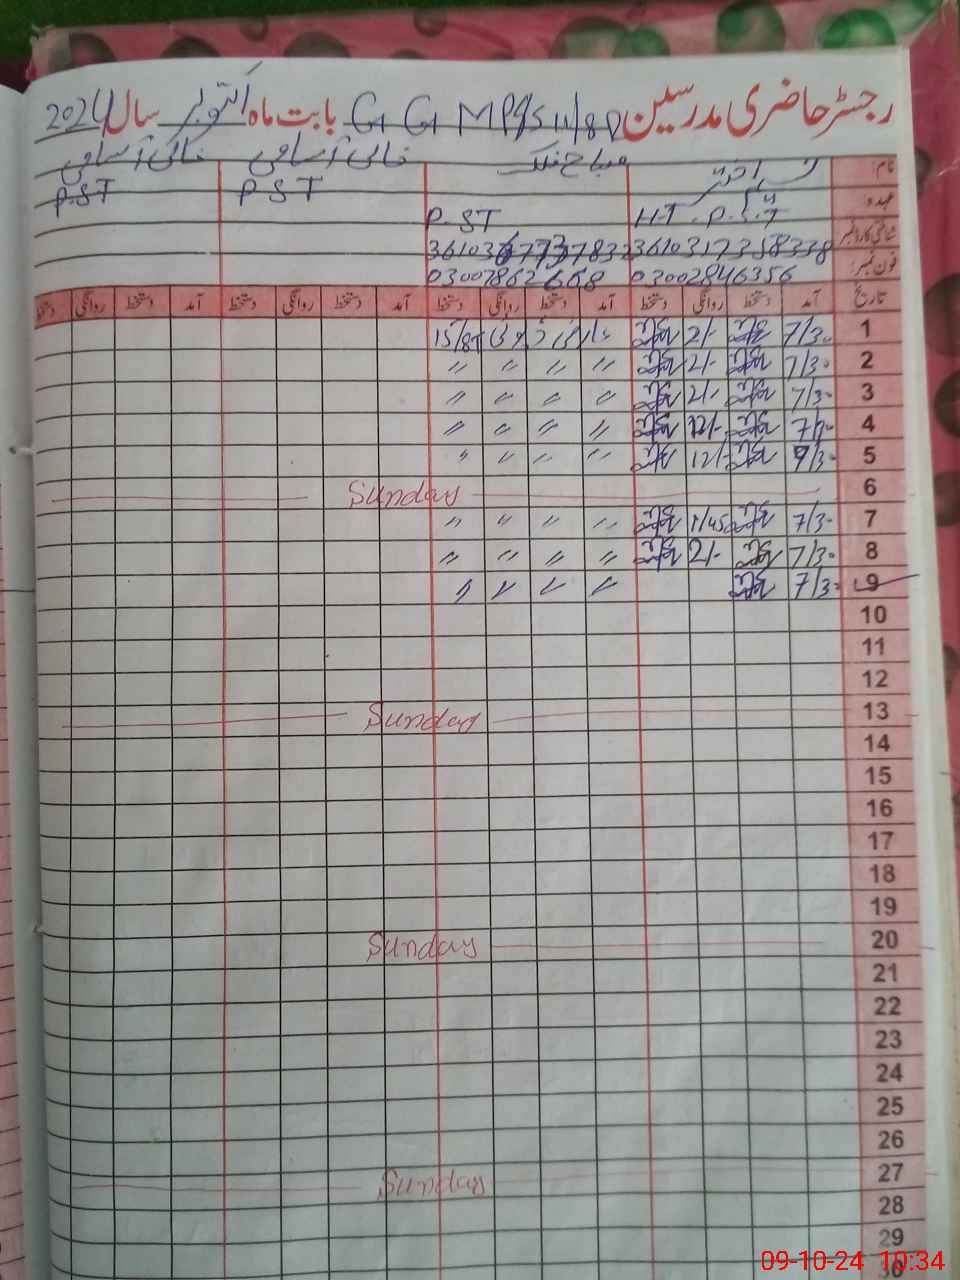 رجسٹر حاضری مدرسین GGMPS 11/8D بابت ماہ اکتوبر سال 2024
نام: اختر مصباح ملک خالی آسامی خالی آسامی
عہدہ: H.T. P.S.T P.ST P.ST P.ST
شناختی کارڈ نمبر 3610317358338
فون نمبر: 03002846356 03007862668
تاریخ آمد دستخط روانگی دستخط آمد دستخط روانگی دستخط آمد دستخط روانگی دستخط آمد دستخط روانگی دستخط
1 7/30 2/- 15/8
2 7/30 2/- 〃 〃 〃 〃
3 7/30 2/- 〃 〃 〃 〃
4 12/- 〃 〃 〃 〃
5 12/- 〃 〃 〃 〃
6 Sunday
7 7/30 1/45 〃 〃 〃 〃
8 7/30 2/- 〃 〃 〃 〃
9 7/30 〃 〃 〃 〃
10
11
12
13 Sunday
14
15
16
17
18
19
20 Sunday
21
22
23
24
25
26
27 Sunday
28
29
30
09-10-24 10:34